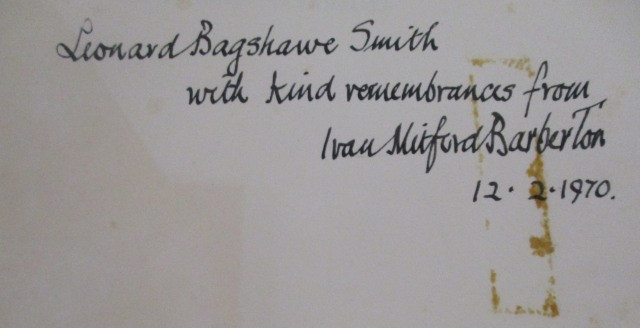 Leonard Bagshawe Smith
with kind remembrances from
Ivan Mitford Barberton
12·2·1970.